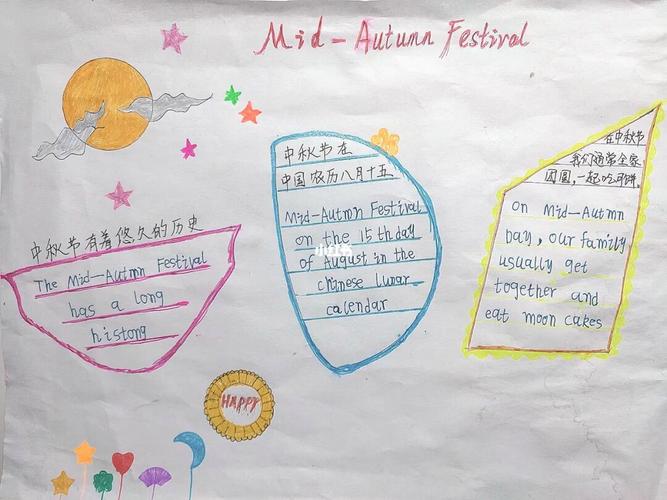 Mid-Autumn Festival
中秋节有着悠久的历史
The Mid-Autmn Festival
has a long
histong
中秋节在
中国农历八月十五
Mid-Autmn Festival
on the 15th day
of August in the
chinese lunar
calendar
小红书
在中秋节
我们通常全家
团圆,一起吃月饼.
on Mid-Autmn
Day, our family
usually get
together and
eat moon cakes
HAPPY